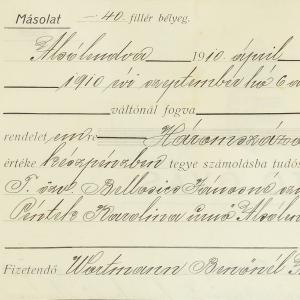 Másolat —40 fillér bélyeg.
Alsólendva 1910 április
1910 évi szeptember hó 6 a
váltónál fogva
rendelet em re Háromszáz
értéke készpénzben tegye számolásba tudós
T. özv. Bellosics Jánosné szü
Péntek Karolina úrnő Alsólen
Fizetendő Wortmann Benőnél